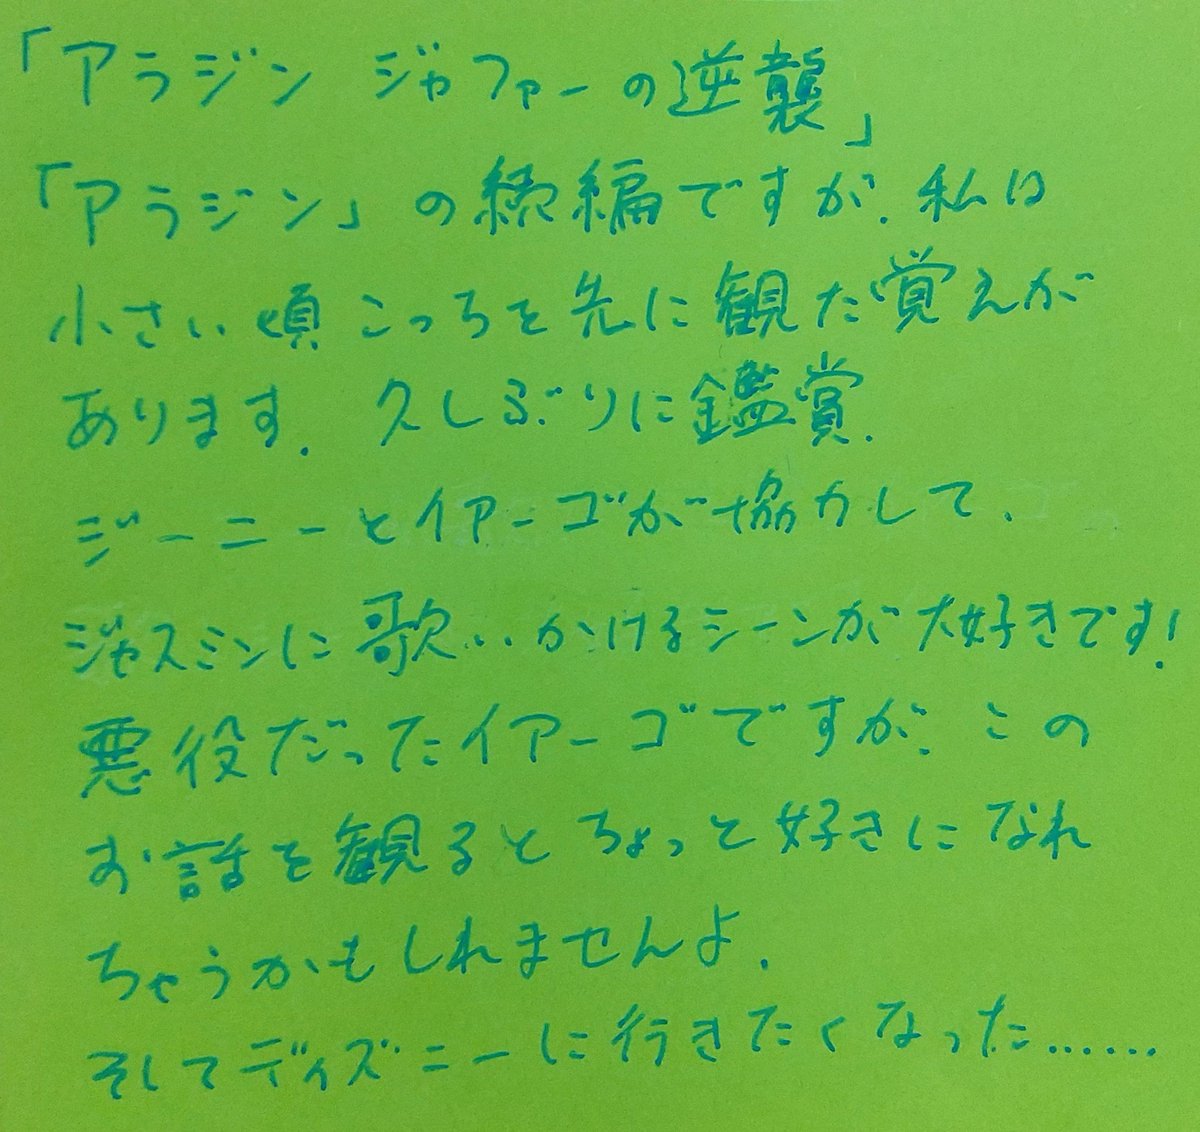 「アラジン ジャファーの逆襲」
「アラジン」の続編ですが、私は
小さい頃こっちを先に観た覚えが
あります. 久しぶりに鑑賞.
ジーニーとイアーゴが協力して、
ジャスミンに歌いかけるシーンが大好きです!
悪役だったイアーゴですが、この
お話を観るとちょっと好きになれ
ちゃうかもしれませんよ.
そしてディズニーに行きたくなった……